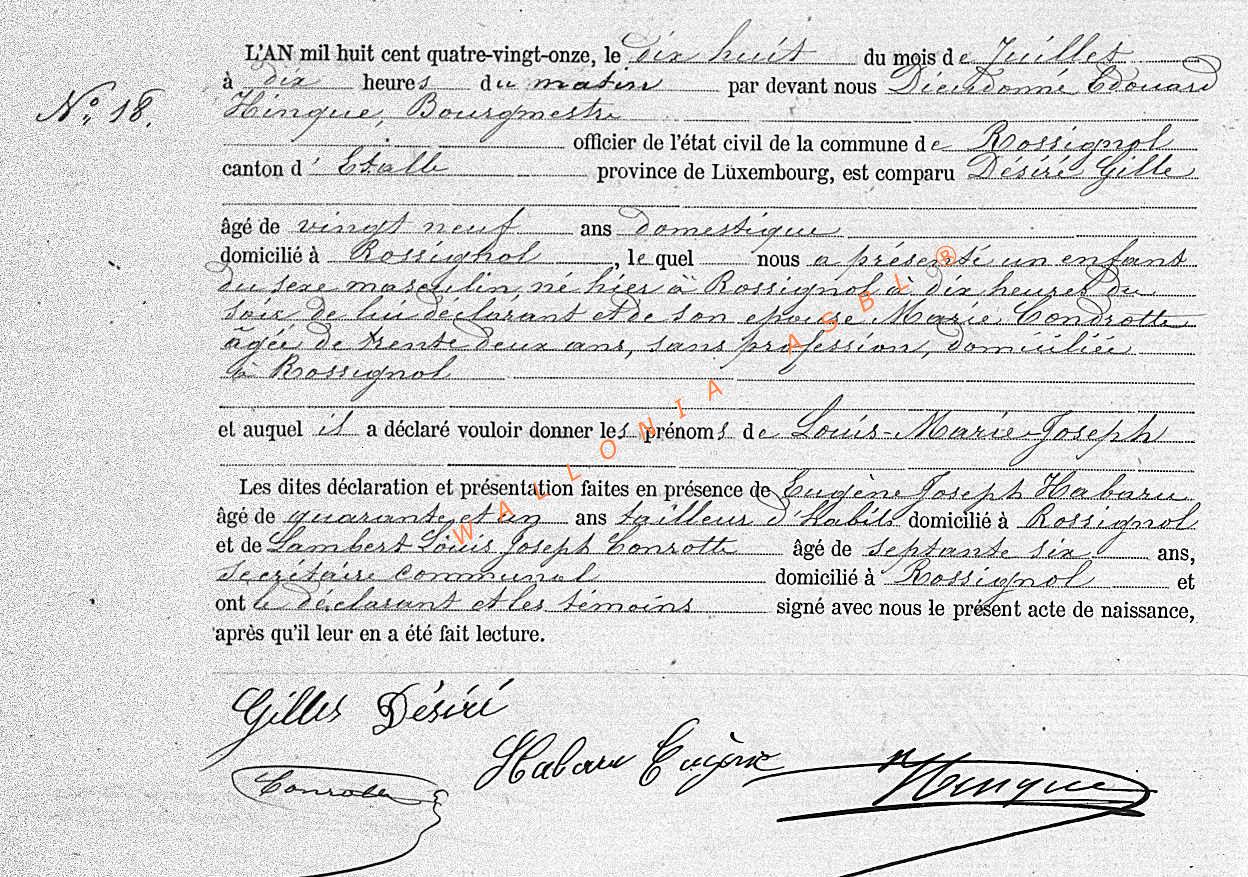 L'AN mil huit cent quatre-vingt-onze, le dix huit du mois de Juillet
à dix heures du matin par devant nous Dieudonné Edouard
N° 18.
Hinque, Bourgmestre
officier de l'état civil de la commune de Rossignol
canton d' Etalle province de Luxembourg, est comparu Désiré Gille
âgé de vingt neuf ans domestique
domicilié à Rossignol, le quel nous a présenté un enfant
du sexe masculin, né hier à Rossignol à dix heures du
soir de lui déclarant et de son epouse Marie Condrotte
âgée de trente deux ans, sans profession, domiciliée
à Rossignol
et auquel il a déclaré vouloir donner les prénoms de Louis-Marie-Joseph
Les dites déclaration et présentation faites en présence de Eugène Joseph Habaru
âgé de quarante et un ans tailleur d'habits domicilié à Rossignol
et de Lambert Louis Joseph Conrotte âgé de septante six ans,
secrétaire communal domicilié à Rossignol et
ont le déclarant et les témoins signé avec nous le présent acte de naissance,
après qu'il leur en a été fait lecture.
Gilles Désiré
Habaru Eugène
Conrotte
Hinque
WALLONIA ASBL ®